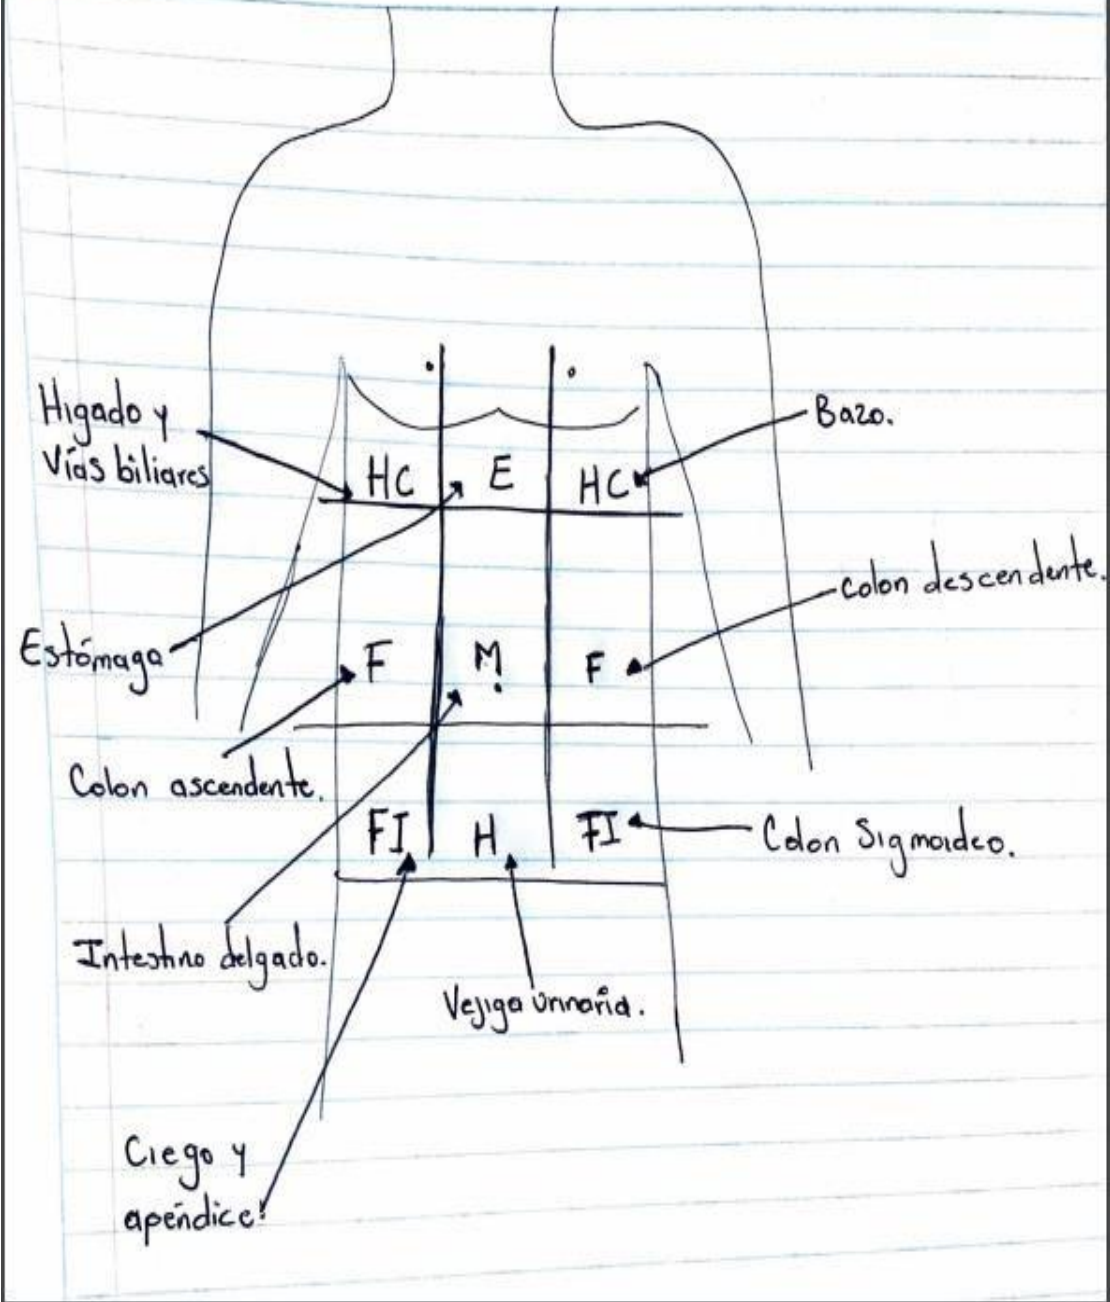 Higado y
Vías biliares
Bazo.
HC E HC
colon descendente.
Estómaga
F M F
Colon ascendente.
FI H FI
Colon Sigmoideo.
Intestino delgado.
Vejiga urinaria.
Ciego y
apéndice.